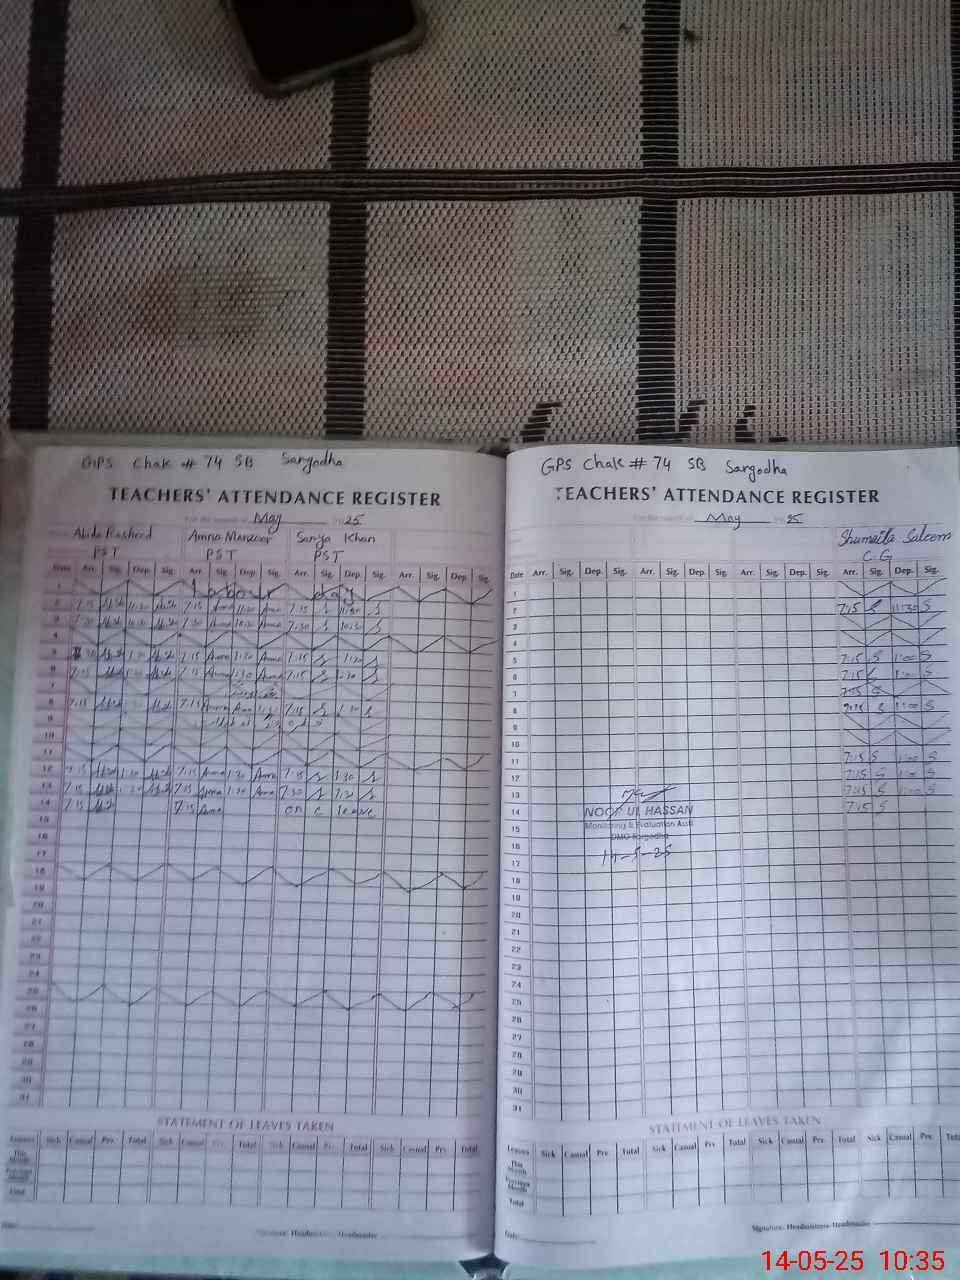 GPS Chak # 74 SB Sargodha
TEACHERS' ATTENDANCE REGISTER
For the month of May 25
Abida Rasheed Amna Manzoor Sanya Khan
PST PST PST
Date Arr. Sig. Dep. Sig. Arr. Sig. Dep. Sig. Arr. Sig. Dep. Sig. Arr. Sig. Dep. Sig.
1 Labour day
2 7:15 11:30 7:15 Amna 11:30 Amna 7:15 11:30
3 7:30 10:30 7:30 Amna 10:30 Amna 7:30 10:30
4
5 1:30 7:15 Amna 1:30 Amna 7:15 1:30
6 7:15 1:30 7:15 Amna 1:30 Amna 7:15 1:30
7
8 7:15 7:15 Amna 7:15 1:30
9
10
11
12 7:15 1:30 7:15 Amna 1:30 Amna 7:15 1:30
13 7:15 1:30 7:15 Amna 1:30 Amna 7:30 1:30
14 7:15 7:15 Amna on c leave
15
16
17
18
19
20
21
22
23
24
25
26
27
28
29
30
31
STATEMENT OF LEAVES TAKEN
Leaves Sick Casual Prv. Total Sick Casual Prv. Total Sick Casual Prv. Total Sick Casual Prv. Total
This Month
Previous Month
Total
Date:
Signature: Headmistress/Headmaster
GPS Chak # 74 SB Sargodha
TEACHERS' ATTENDANCE REGISTER
For the month of May 25
Shumaila Saleem
C.G
Date Arr. Sig. Dep. Sig. Arr. Sig. Dep. Sig. Arr. Sig. Dep. Sig. Arr. Sig. Dep. Sig.
1
2 7:15 S 11:30 S
3
4
5 7:15 S 1:00 S
6 7:15 S 1:00 S
7 7:15 S
8 7:15 S 1:00 S
9
10
11 7:15 S 1:00 S
12 7:15 S 1:00 S
13 7:15 S 1:00 S
14 NOOR UL HASSAN 7:15 S
15 Monitoring & Evaluation Astt
16 DMO Sargodha
14-5-25
17
18
19
20
21
22
23
24
25
26
27
28
29
30
31
STATEMENT OF LEAVES TAKEN
Leaves Sick Casual Prv. Total Sick Casual Prv. Total Sick Casual Prv. Total Sick Casual Prv. Total
This Month
Previous Month
Total
Date:
Signature: Headmistress/Headmaster
14-05-25 10:35